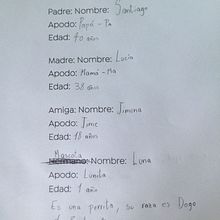 Padre: Nombre: Santiago
Apodo: Papá - Pa
Edad: 40 años
Madre: Nombre: Lucia
Apodo: Mamá - Ma
Edad: 38 años
Amiga: Nombre: Jimena
Apodo: Jime
Edad: 18 años
Mascota
Hermano: Nombre: Luna
Apodo: Lunita
Edad: 1 año
Es una perrita, su raza es Dogo